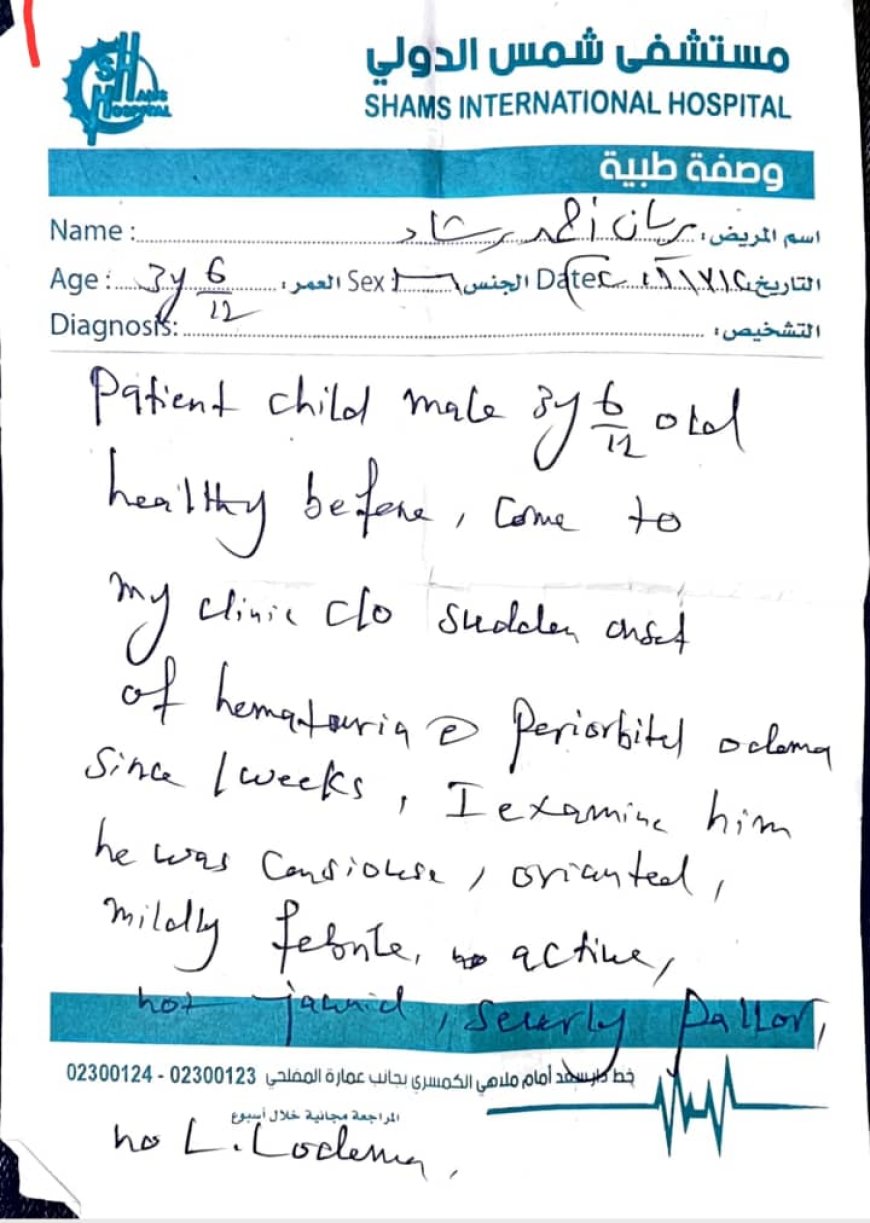 SHAMS HOSPITAL
مستشفى شمس الدولي
SHAMS INTERNATIONAL HOSPITAL
وصفة طبية
Name : أحمد اسم المريض :
Age : 3y 6/12 العمر : Sex : الجنس Date التاريخ
Diagnosis: التشخيص :
Patient child male 3y 6/12 old
healthy before, come to
my clinic c/o sudden onset
of hematouria c Periorbital odema
Since 1 weeks, I examine him
he was Consiouse, orianted,
mildly febrile, active,
not jaunid, severly pallor,
خط أمام ملاهي الكمسري بجانب عمارة المفلحي 02300123 - 02300124
المراجعة مجانية خلال أسبوع
no L.Lodema,